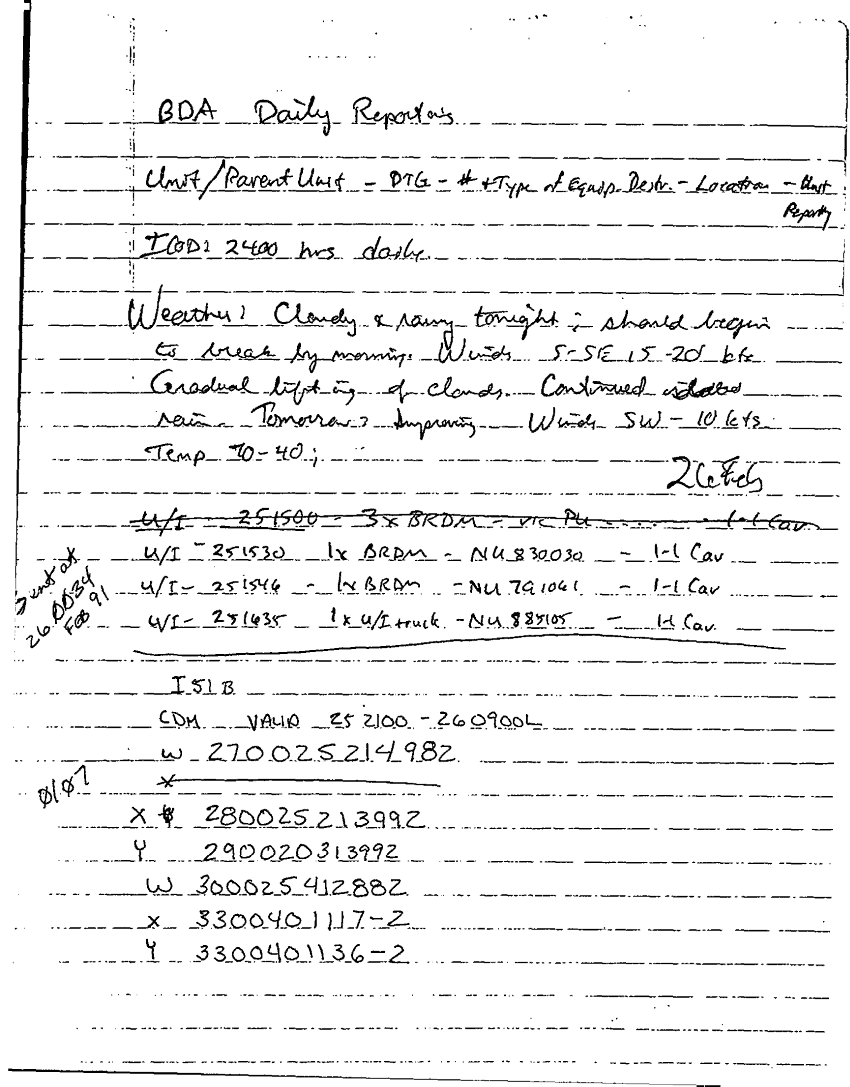 BDA Daily Reporting
Unit/Parent Unit - DTG - # + Type of Equip. Destr. - Location - Unit Reporting
ICOD: 2400 hrs daily.
Weather: Cloudy & rainy tonight; should begin
to break by morning. Winds S-SE 15-20 kts
Gradual lifting of clouds. Continued
rain. Tomorrow: Improving Winds SW - 10 kts.
Temp 70-40;
26 Feb
U/I - 251500 - 3x BRDM - vic PL ........ - 1-1 Cav
U/I - 251530 1x BRDM - NU 830030 - 1-1 Cav
U/I - 251546 - 1x BRDM - NU 791061 - 1-1 Cav
U/I - 251635 1x U/I truck - NU 885105 - 1-1 Cav
Sent at
26 0034
FEB 91
I51B
CDM VALID 252100 - 260900L
W 2700252 14982
0107
X 280025213992
Y 290020313992
W 300025412882
X 3300401117-2
Y 3300401136-2